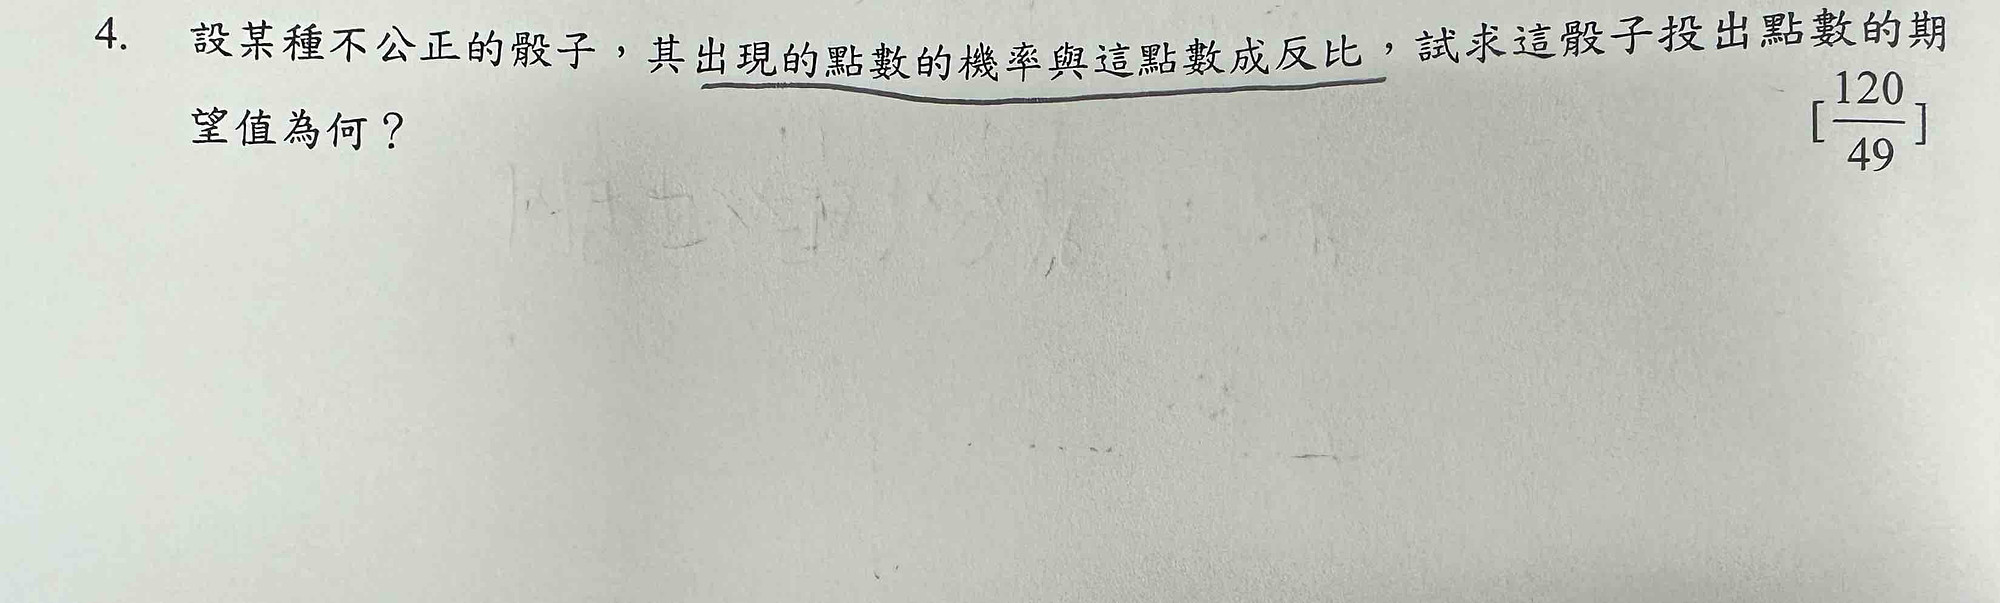 4. 設某種不公正的骰子，其出現的點數的機率與這點數成反比，試求這骰子投出點數的期
望值為何？ [120/49]